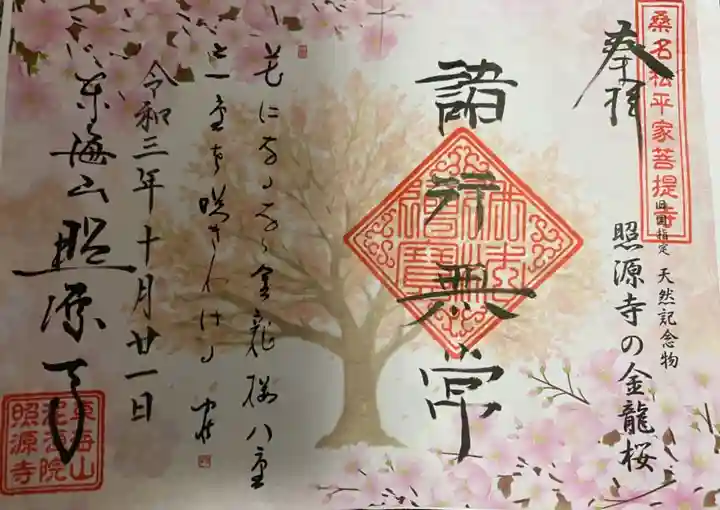 桑名松平家菩提寺
奉拝
旧国指定 天然記念物
照源寺の金龍桜
諸行無常
佛法僧寶
花になるなる金龍桜八重
一重を咲きわける
令和三年十月廿一日
東海山照源寺
東海山
泥洹院
照源寺